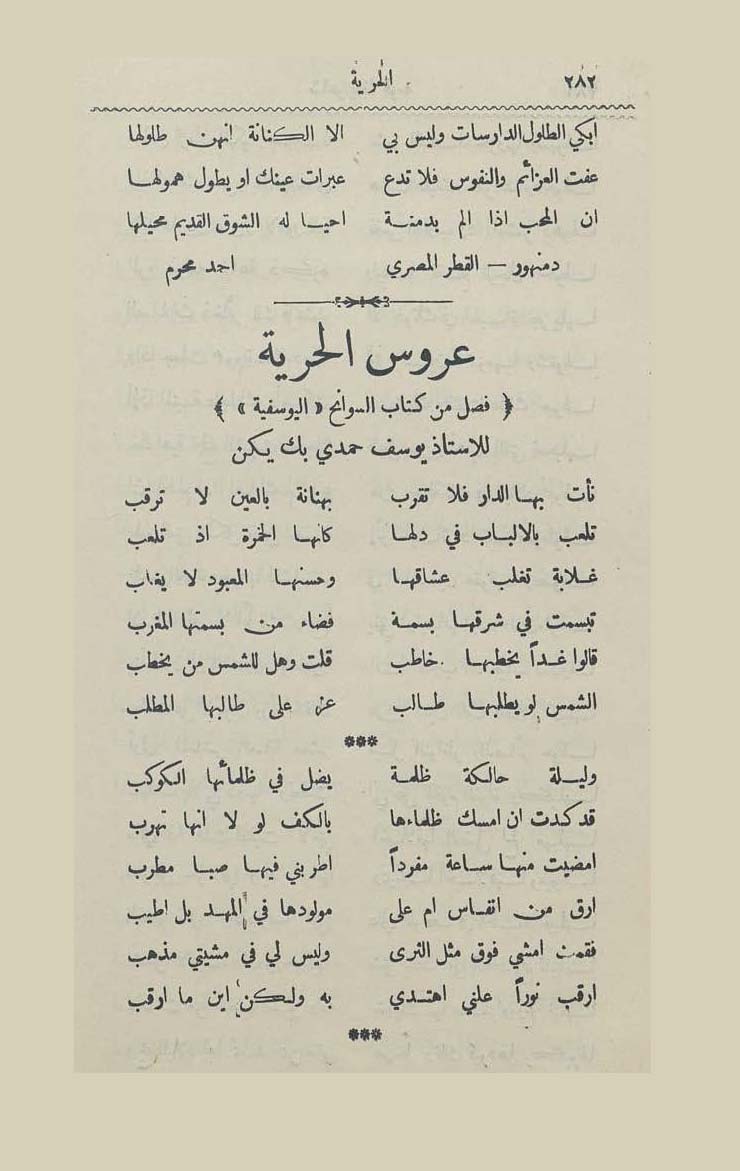 ٢٨٢ الحرية
ابكي الطلول الدارسات وليس بي الا الكنانة انهن طلولها
عفت العزائم والنفوس فلا تدع عبرات عينك او يطول همولها
ان المحب اذا الم بدمنة احيا له الشوق القديم محيلها
دمنهور — القطر المصري احمد محرم
عروس الحرية
﴿ فصل من كتاب السوانح « اليوسفية » ﴾
للاستاذ يوسف حمدي بك يكن
نأت بها الدار فلا تقرب بهنانة بالعين لا ترقب
تلعب بالالباب في دلها كانها الخمرة اذ تلعب
غلابة تغلب عشاقها وحسنها المعبود لا يغاب
تبسمت في شرقها بسمة فضاء من بسمتها المغرب
قالوا غداً يخطبها خاطب قلت وهل للشمس من يخطب
الشمس لو يطلبها طالب عز على طالبها المطلب
***
وليلة حالكة ظلمة يضل في ظلمائها الكوكب
قد كدت ان امسك ظلماءها بالكف لو لا انها تهرب
امضيت منها ساعة مفرداً اطربني فيها صبا مطرب
ارق من انفاس ام على مولودها في المهد بل اطيب
فقمت امشي فوق مثل الثرى وليس لي في مشيتي مذهب
ارقب نوراً علني اهتدي به ولكن اين ما ارقب
***